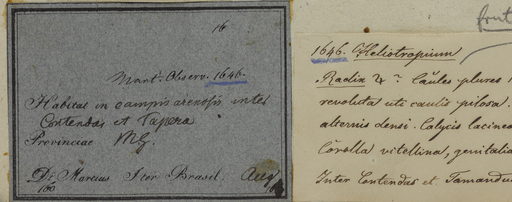 16
Mart. Observ. 1646.
Habitat in campis arenosis inter
Contendas et Tapera
Provinciae MG.
Dr. Martius Iter Brasil. Aug
100
1646. Heliotropium
Radix ♃. Caules plures
revoluta uti caulis pilosa.
alternis densi. Calycis lacineae
Corolla vitellina, genitalia
Inter Contendas et Tamandua